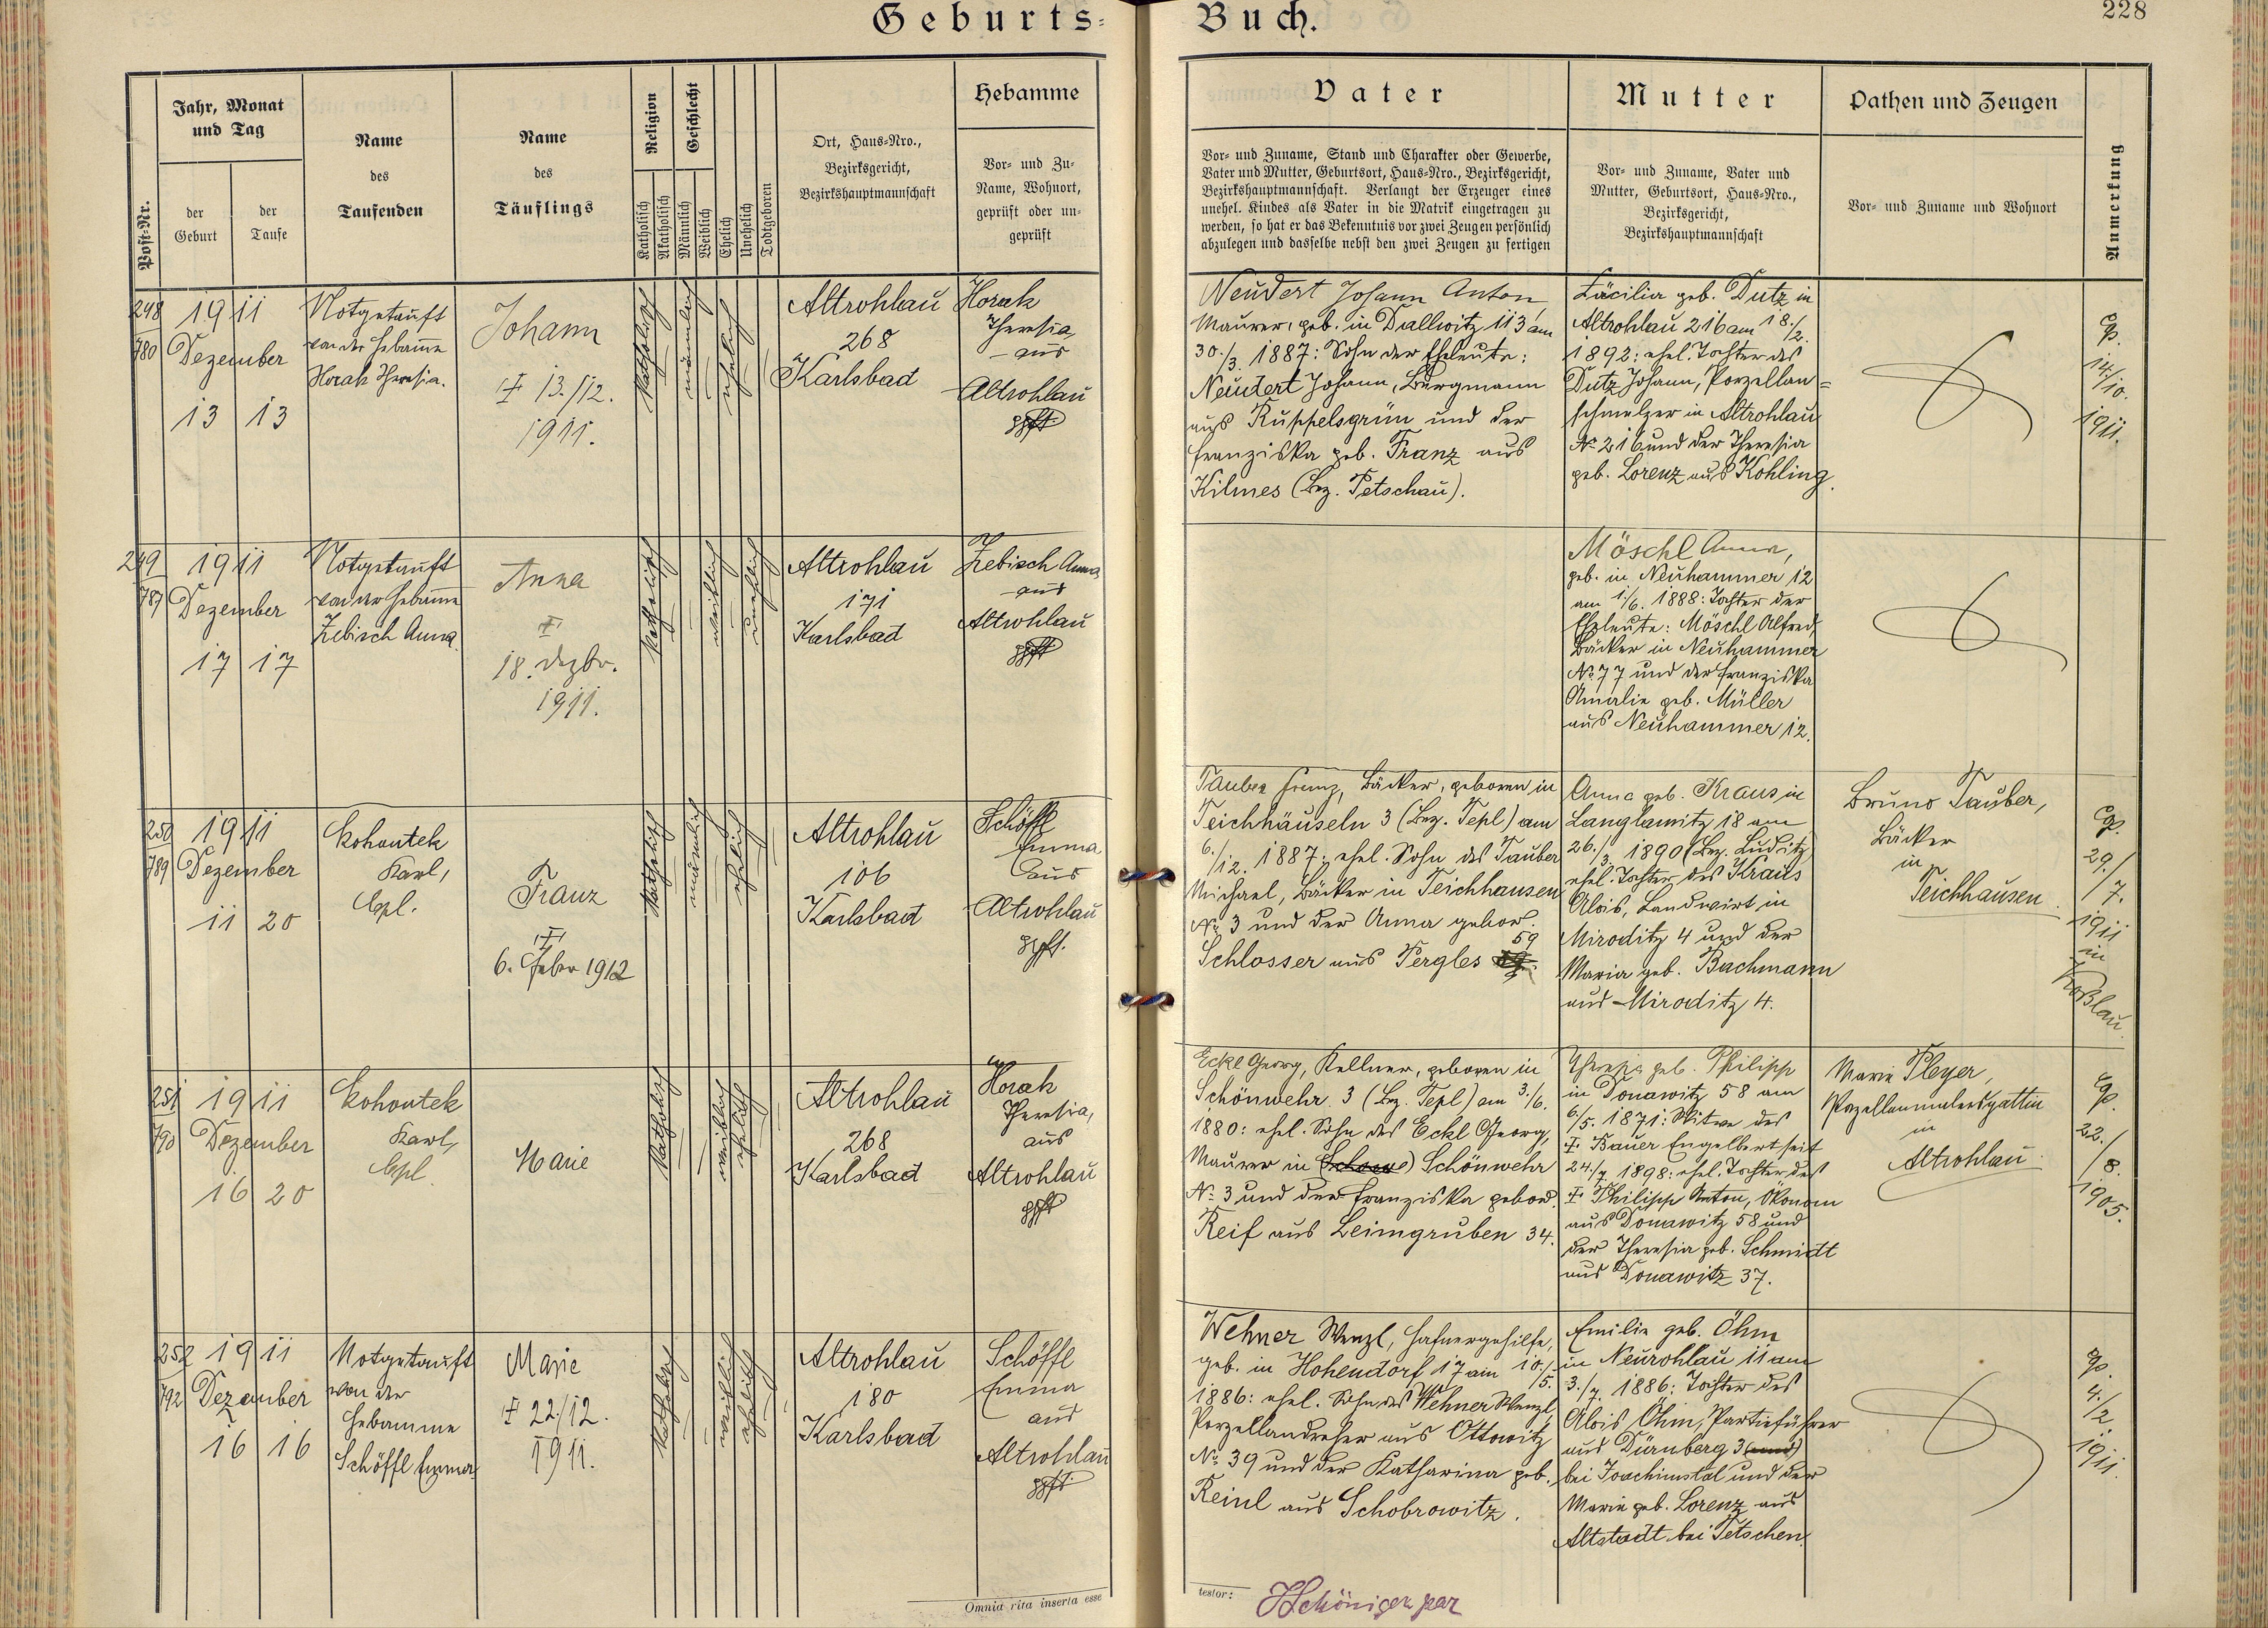 Geburts-Buch.
228
Post-Nr.
Jahr, Monat
und Tag
der
Geburt
der
Taufe
Name
des
Taufenden
Name
des
Täuflings
Religion
Katholisch
Akatholisch
Geschlecht
Männlich
Weiblich
Ehelich
Unehelich
Todtgeboren
Ort, Haus-Nro.,
Bezirksgericht,
Bezirkshauptmannschaft
Hebamme
Vor- und Zu-
Name, Wohnort,
geprüft oder un-
geprüft
Vater
Vor- und Zuname, Stand und Charakter oder Gewerbe,
Vater und Mutter, Geburtsort, Haus-Nro., Bezirksgericht,
Bezirkshauptmannschaft. Verlangt der Erzeuger eines
unehel. Kindes als Vater in die Matrik eingetragen zu
werden, so hat er das Bekenntnis vor zwei Zeugen persönlich
abzulegen und dasselbe nebst den zwei Zeugen zu fertigen
Mutter
Vor- und Zuname, Vater und
Mutter, Geburtsort, Haus-Nro.,
Bezirksgericht,
Bezirkshauptmannschaft
Pathen und Zeugen
Vor- und Zuname und Wohnort
Anmerkung
248
780
1911
Dezember
13 13
Notgetauft
von der Hebamme
Horak Theresia.
Johann
† 13./12.
1911.
katholisch
männlich
ehelich
Altrohlau
268
Karlsbad
Horak
Theresia,
aus
Altrohlau
gpft
Neudert Johann Anton,
Maurer, geb. in Dallwitz 113 am
30./3. 1887: Sohn der Eheleute:
Neudert Johann, Bergmann
aus Ruppelsgrün und der
Franziska geb. Franz aus
Kilmes (Bez. Petschau).
Zäcilia geb. Dutz in
Altrohlau 216 am 18./2.
1892: ehel. Tochter des
Dutz Johann, Porzellan-
schmelzer in Altrohlau
No 216 und der Theresia
geb. Lorenz aus Kohling.
cp.
14./10.
1911.
249
787
1911
Dezember
17 17
Notgetauft
von der Hebamme
Zebisch Anna
Anna
†
18. Dezbr.
1911.
katholisch
weiblich
unehelich
Altrohlau
171
Karlsbad
Zebisch Anna
aus
Altrohlau
gpft
Möschl Anna,
geb. in Neuhammer 12
am 1./6. 1888: Tochter der
Eheleute: Möschl Alfred,
Bäcker in Neuhammer
No 77 und der Franziska
Amalie geb. Müller
aus Neuhammer 12.
250
789
1911
Dezember
11 20
Kohoutek
Karl,
Cpl.
Franz
†
6. Feber 1912
katholisch
männlich
ehelich
Altrohlau
106
Karlsbad
Schöffl
Emma
aus
Altrohlau
gpft.
Tauber Franz, Bäcker, geboren in
Teichhäuseln 3 (Bez. Tepl) am
6./12. 1887: ehel. Sohn des Tauber
Michael, Bäcker in Teichhausen
No 3 und der Anna gebor.
Schlosser aus Pergles 59
Anna geb. Kraus in
Langlamitz 18 am
26./3. 1890 (Bez. Luditz)
ehel. Tochter des Kraus
Alois, Landwirt in
Miroditz 4 und der
Maria geb. Bachmann
aus Miroditz 4.
Bruno Tauber,
Bäcker
in
Teichhausen
cp.
29./
7.
1911
in
251
790
1911
Dezember
16 20
Kohoutek
Karl,
Cpl
Marie
katholisch
weiblich
ehelich
Altrohlau
268
Karlsbad
Horak
Theresia,
aus
Altrohlau
gpft
Eckl Georg, Kellner, geboren in
Schönwehr 3 (Bez. Tepl) am 3./6.
1880: ehel. Sohn des Eckl Georg,
Maurer in Schönwehr
No 3 und der Franziska gebor.
Reif aus Leimgruben 34.
Theresia geb. Philipp
in Donawitz 58 am
6./5. 1871: Witwe des
† Bauer Engelbert seit
24./7. 1898: ehel. Tochter des
† Philipp Anton, Ökonom
aus Donawitz 58 und
der Theresia geb. Schmidt
aus Donawitz 37.
Marie Pleyer,
Porzellanmalersgattin
in
Altrohlau
cp.
22./
8.
1905.
252
792
1911
Dezember
16 16
Notgetauft
von der
Hebamme
Schöffl Emma
Marie
† 22./12.
1911.
katholisch
weiblich
ehelich
Altrohlau
180
Karlsbad
Schöffl
Emma
aus
Altrohlau
gpft
Wehner Wenzl, Hafnergehilfe,
geb. in Hohendorf 17 am 10./5.
1886: ehel. Sohn des Wehner Wenzl,
Porzellandreher aus Ottowitz
No 39 und der Katharina geb.
Reinl aus Schobrowitz.
Emilie geb. Öhm
in Neurohlau 11 am
3./7. 1886: Tochter des
Alois Öhm, Partieführer
aus Dürnberg 3 (und)
bei Joachimstal und der
Marie geb. Lorenz aus
Altstadt bei Tetschen.
cp.
4./
2.
1911.
Omnia rita inserta esse
testor: